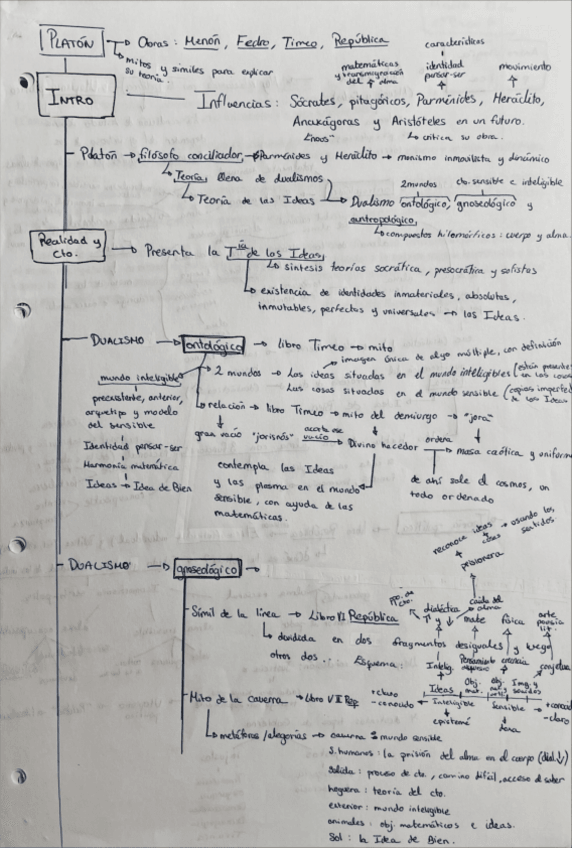 PLATÓN → Obras: Menón, Fedro, Timeo, República
Mitos y símiles para explicar
su teoría.
características
matemáticas
y transmigración
del alma
identidad
pensar-ser
movimiento
INTRO
Influencias: Sócrates, pitagóricos, Parménides, Heráclito,
Anaxágoras y Aristóteles en un futuro.
critica su obra.
Platón → filósofo conciliador → Parménides y Heráclito → monismo inmovilista y dinámico
Teoría llena de dualismos
2 mundos
cto. sensible e inteligible
Teoría de las Ideas → Dualismo ontológico, gnoseológico y
antropológico.
compuestos hilemórficos: cuerpo y alma.
Realidad y
cto.
→ Presenta la Tía de las Ideas
síntesis teorías socrática, presocrática y sofistas
existencia de identidades inmateriales, absolutas,
inmutables, perfectas y universales → las Ideas.
DUALISMO → ontológico → libro Timeo → mito
imagen única de algo múltiple, con definición
mundo inteligible
2 mundos → Las ideas situadas en el mundo inteligibles (están presentes
Las cosas situadas en el mundo sensible (copias
de las Ideas
preexistente, anterior,
arquetipo y modelo
del sensible
relación → libro Timeo → mito del demiurgo → "jora"
gran vacío "jorismós"
Divino hacedor
ordena
masa caótica y uniforme
Identidad pensar-ser
Harmonía matemática
Ideas → Idea de Bien
contempla las Ideas
y las plasma en el mundo
sensible, con ayuda de las
matemáticas.
de ahí sale el cosmos, un
todo ordenado
DUALISMO → gnoseológico →
reconoce ideas y cosas → usando los
sentidos
prisionera
caída del
alma
ppo. de
cto.
dialéctica
↑ y ↓
mate
física
arte
poesía
lit.
Símil de la línea → Libro VI República
dividida en dos fragmentos desiguales y luego
otros dos.. Esquema:
Intelig.
Pensamiento
creencia
conjetura
Ideas
Obj.
mat.
Obj.
nats
Img. y
sonidos
+claro
-conocido
Inteligible
Sensible
+conocido
-claro
epistemé
doxa
Mito de la caverna → Libro VII Rep
metáforas/alegorías → caverna = mundo sensible
s. humanos: la prisión del alma en el cuerpo (dial. ↓)
salida: proceso de cto., camino difícil, acceso al saber
hoguera: teoría del cto.
exterior: mundo inteligible
animales: obj. matemáticos e ideas.
Sol: la Idea de Bien.